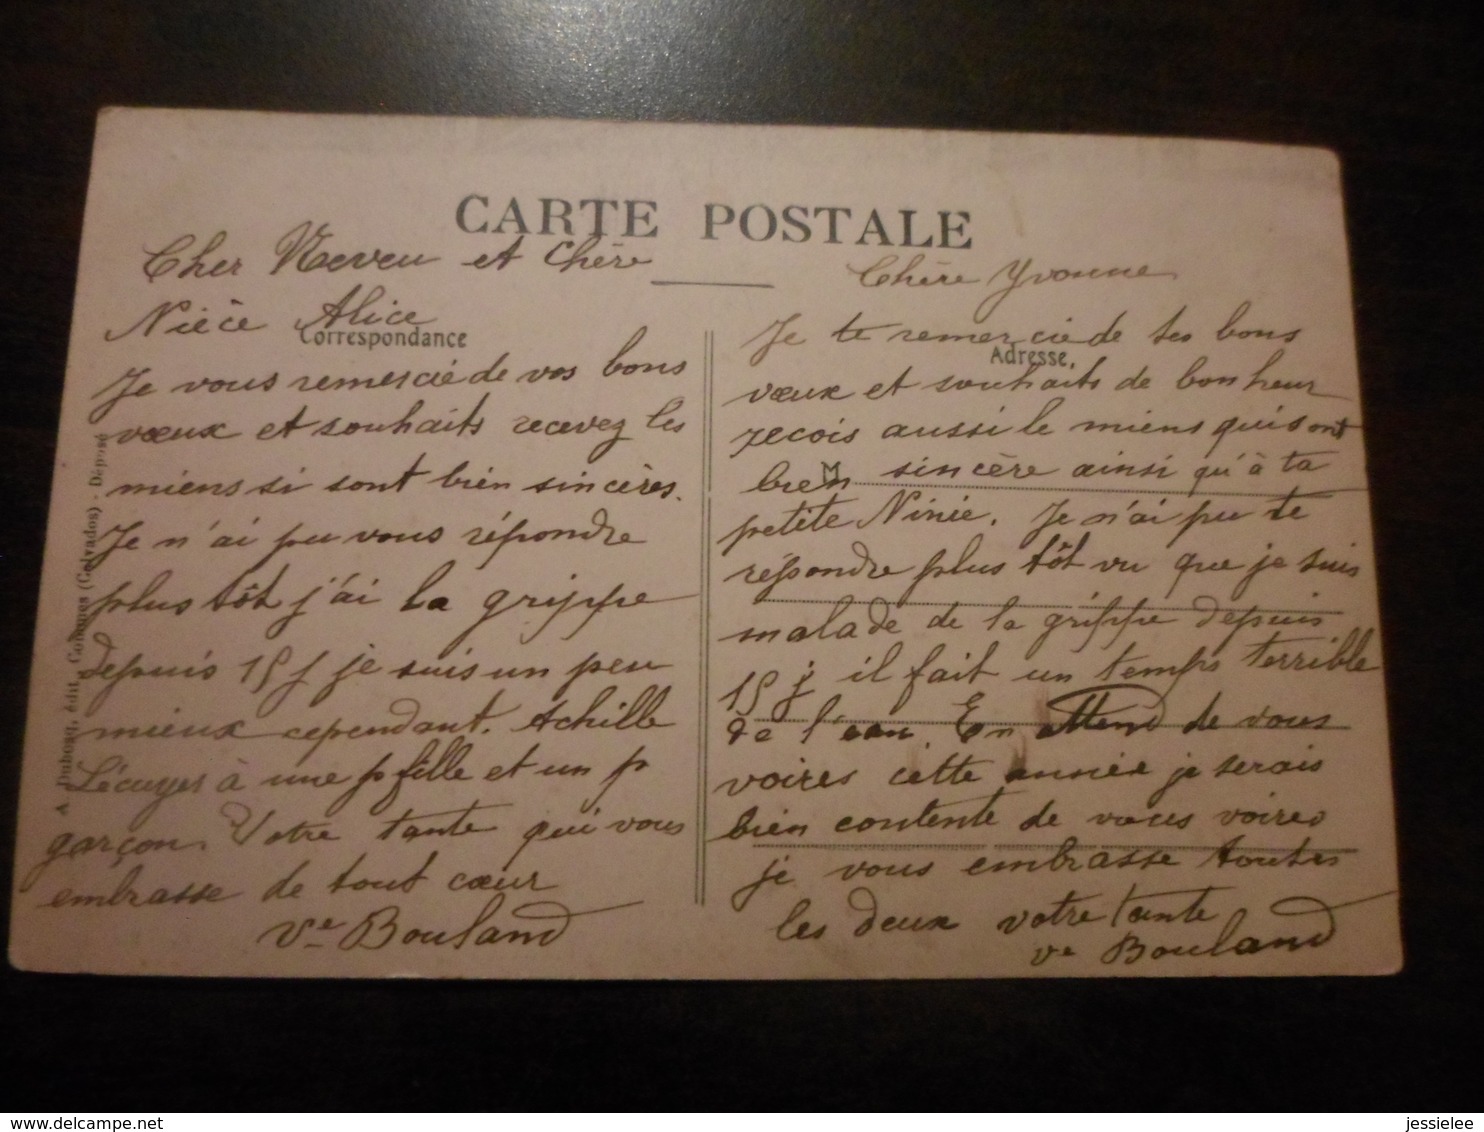 CARTE POSTALE
Cher Neveu et Chère
Nièce Alice
Correspondance
Je vous remercie de vos bons
vœux et souhaits recevez les
miens si sont bien sincères.
Je n'ai pu vous répondre
plus tôt j'ai la grippe
depuis 15 j je suis un peu
mieux cependant. Achille
Lécuyer à une p fille et un p
garçon. Votre tante qui vous
embrasse de tout cœur
Ve Bouland
Chère Yvonne
Je te remercie de tes bons
Adresse,
vœux et souhaits de bonheur
reçois aussi le miens qui sont
M
bien sincère ainsi qu'à ta
petite Ninie. Je n'ai pu te
répondre plus tôt vu que je suis
malade de la grippe depuis
15 j il fait un temps terrible
de l'eau En attend de vous
voires cette année je serais
bien contente de vous voires
je vous embrasse toutes
les deux votre tante
Ve Bouland
A. Dubosq, édit. (Calvados) - Déposé
jessielee
www.delcampe.net